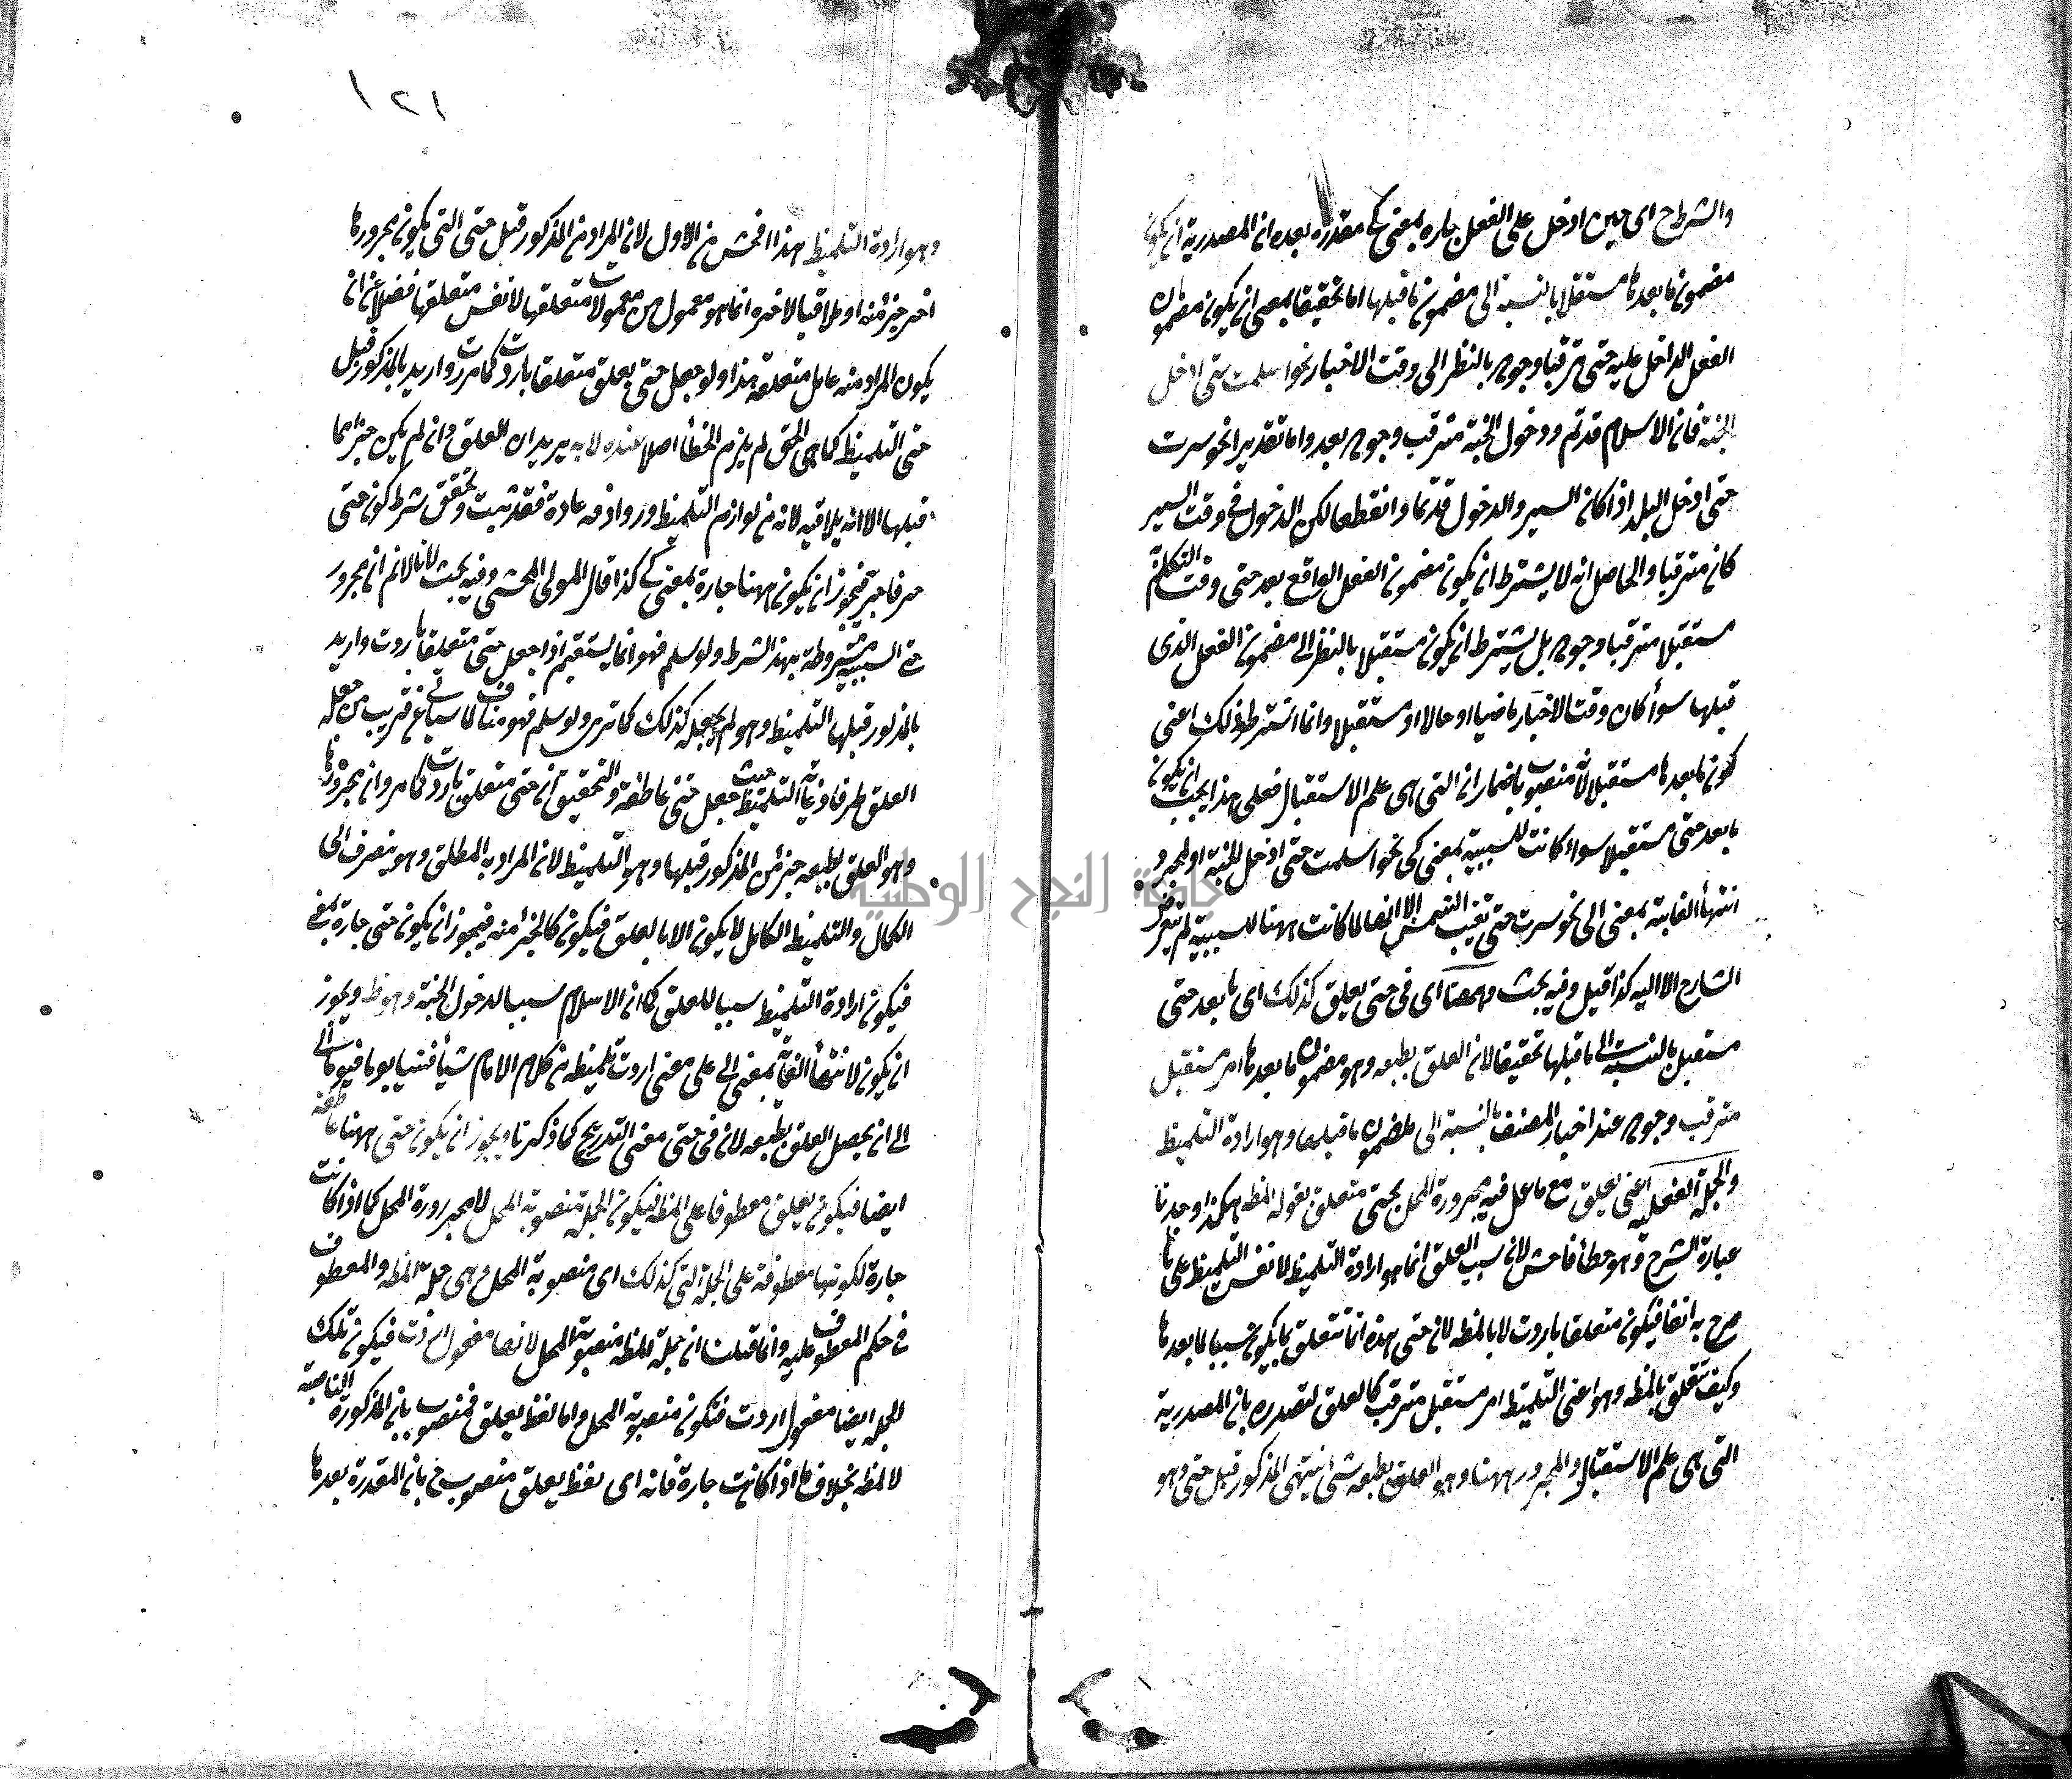 والشرط ح اى حين ادخل على الفعل جاره بمعنى كى مقدرة بعده ان المصدرية ان يكون
مضمون ما بعدها مستقلا بالنسبة الى مضمون ما قبلها اما تحقيقا بمعنى ان يكون مضمون
الفعل الداخل عليه حتى مترقبا وجوده بالنظر الى وقت الاخبار نحو اسلمت حتى ادخل
الجنة فان الاسلام قد تم ودخول الجنة مترقب وجوده بعد واما تقديرا نحو سرت
حتى ادخل البلد اذا كان السير والدخول قد تما وانقطعا لكن الدخول فى وقت السير
كان مترقبا والحاصل انه لا يشترط ان يكون مضمون الفعل الواقع بعد حتى وقت التكلم
مستقبلا مترقبا وجوده بل يشترط ان يكون مستقبلا بالنظر الى مضمون الفعل الذى
قبلها سوأ كان وقت الاخبار ماضيا او حالا او مستقبلا وانما اشترط ذلك اعنى
كون ما بعدها مستقبلا لانه منصوب باضمار ان التى هى علم الاستقبال فعلى هذا يجب ان يكون
ما بعد حتى مستقبلا سواء كانت للسببية بمعنى كى نحو اسلمت حتى ادخل الجنة او لمجرد
انتهأ الغاية بمعنى الى نحو سرت حتى تغيب الشمس الا انها لما كانت ههنا للسببية لم يتعرض
الشارح الا اليه كذا قيل وفيه بحث وههنا اى فى حتى يعلق كذلك اى ما بعد حتى
مستقبل بالنسبة الى ما قبلها تحقيقا لان العلق بطبعه وهو مضمون ما بعدها امر مستقبل
مترقب وجوده عند اخبار المصنف بالنسبة الى مضمون ما قبلها وهو ارادة التلميظ
والجملة الفعلية اعنى يعلق مع ما عمل فيه مجرورة المحل بحتى متعلق بقوله المظه هكذا وجدنا
عبارة الشرح وهو خطأ فاحش لان سبب العلق انما هو ارادة التلميظ لا نفس التلميظ على ما
صرح به انفا فيكون متعلقا باردت لا بالمظه لان حتى هذه انما تتعلق بما يكون سببا لما بعدها
وكيف تتعلق بالمظه وهو اعنى التلميظ امر مستقبل مترقب كالعلق لتصدره بان المصدرية
التى هى علم الاستقبال والمجرور ههنا وهو العلق بطبعه شئ ينتهى المذكور قبل حتى وهو
١٢١
وهو ارادة التلميظ هذا افحش من الاول لان المراد من المذكور قبل حتى التى يكون مجرورها
اخر جزء منه او ملاقيا لاخره انما هو معمول من معمولات متعلقها لا نفس متعلقها فضلا عن ان
يكون المراد منه عامل متعلقه هذا ولو جعل حتى يعلق متعلقا باردت كما مرت واريد بالمذكور قبل
حتى التلميظ كما هى الحق لم يلزم الخطأ اصلا عنده لا به يريد ان العلق وان لم يكن جزأ مما
قبلها الا انه يلاقيه لانه من لوازم التلميظ وروادفه عادة فقد ثبت وتحقق شرط كون حتى
حرفا جر فيجوز ان يكون ههنا جارة بمعنى كى كذا قال المولى المحشى وفيه بحث لانا لا نم ان مجرور
حتى السببية مشروطة بهذا الشرط ولو سلم فهو انما يستقيم اذا جعل حتى متعلقا باردت واريد
بالمذكور قبلها التلميظ وهو لم يجعله كذلك كما ترى ولو سلم فهو مناف لما سيأتى عن قريب من جعله
العلق طرفا وغاية التلميظ حيث جعل حتى عاطفة والتحقيق ان حتى متعلق باردت كما مر وان مجرورها
وهو العلق بطبعه جزء من المذكور قبلها وهو التلميظ لان المراد به المطلق وهو ينصرف الى
الكمال والتلميظ الكامل لا يكون الا بالعلق فيكون كالجزء منه فيجوز ان يكون حتى جارة بمعنى
فيكون ارادة التلميظ سببا للعلق كما ان الاسلام سببا لدخول الجنة وهو ظ ويجوز
ان يكون لانتهأ الغاية بمعنى الى على معنى اردت تلميظه من كلام الامام شيأ فشيأ يوما فيوما الى
الى ان يحصل العلق بطبعه لان فى حتى معنى التدريج كما ذكرنا ويجوز ان يكون حتى ههنا عاطفة
ايضا فيكون يعلق معطوفا على المظه فيكون الجملة منصوبة المحل لا مجرورة المحل كما اذا كانت
جارة لكونها معطوفة على الجملة التى كذلك اى منصوبة المحل وهى جملة المظه والمعطوف
فى حكم المعطوف عليه وانما قلنا ان جملة المظه منصوبة المحل لانها مفعول اردت فيكون تلك
الجملة ايضا مفعول اردت فتكون منصوبة المحل واما لفظ يعلق فمنصوب بان المذكورة الناصبة
لالمظه بخلاف ما اذا كانت جارة فانه اى لفظ يعلق منصوب ح بان المقدرة بعدها
جامعة النجاح الوطنية